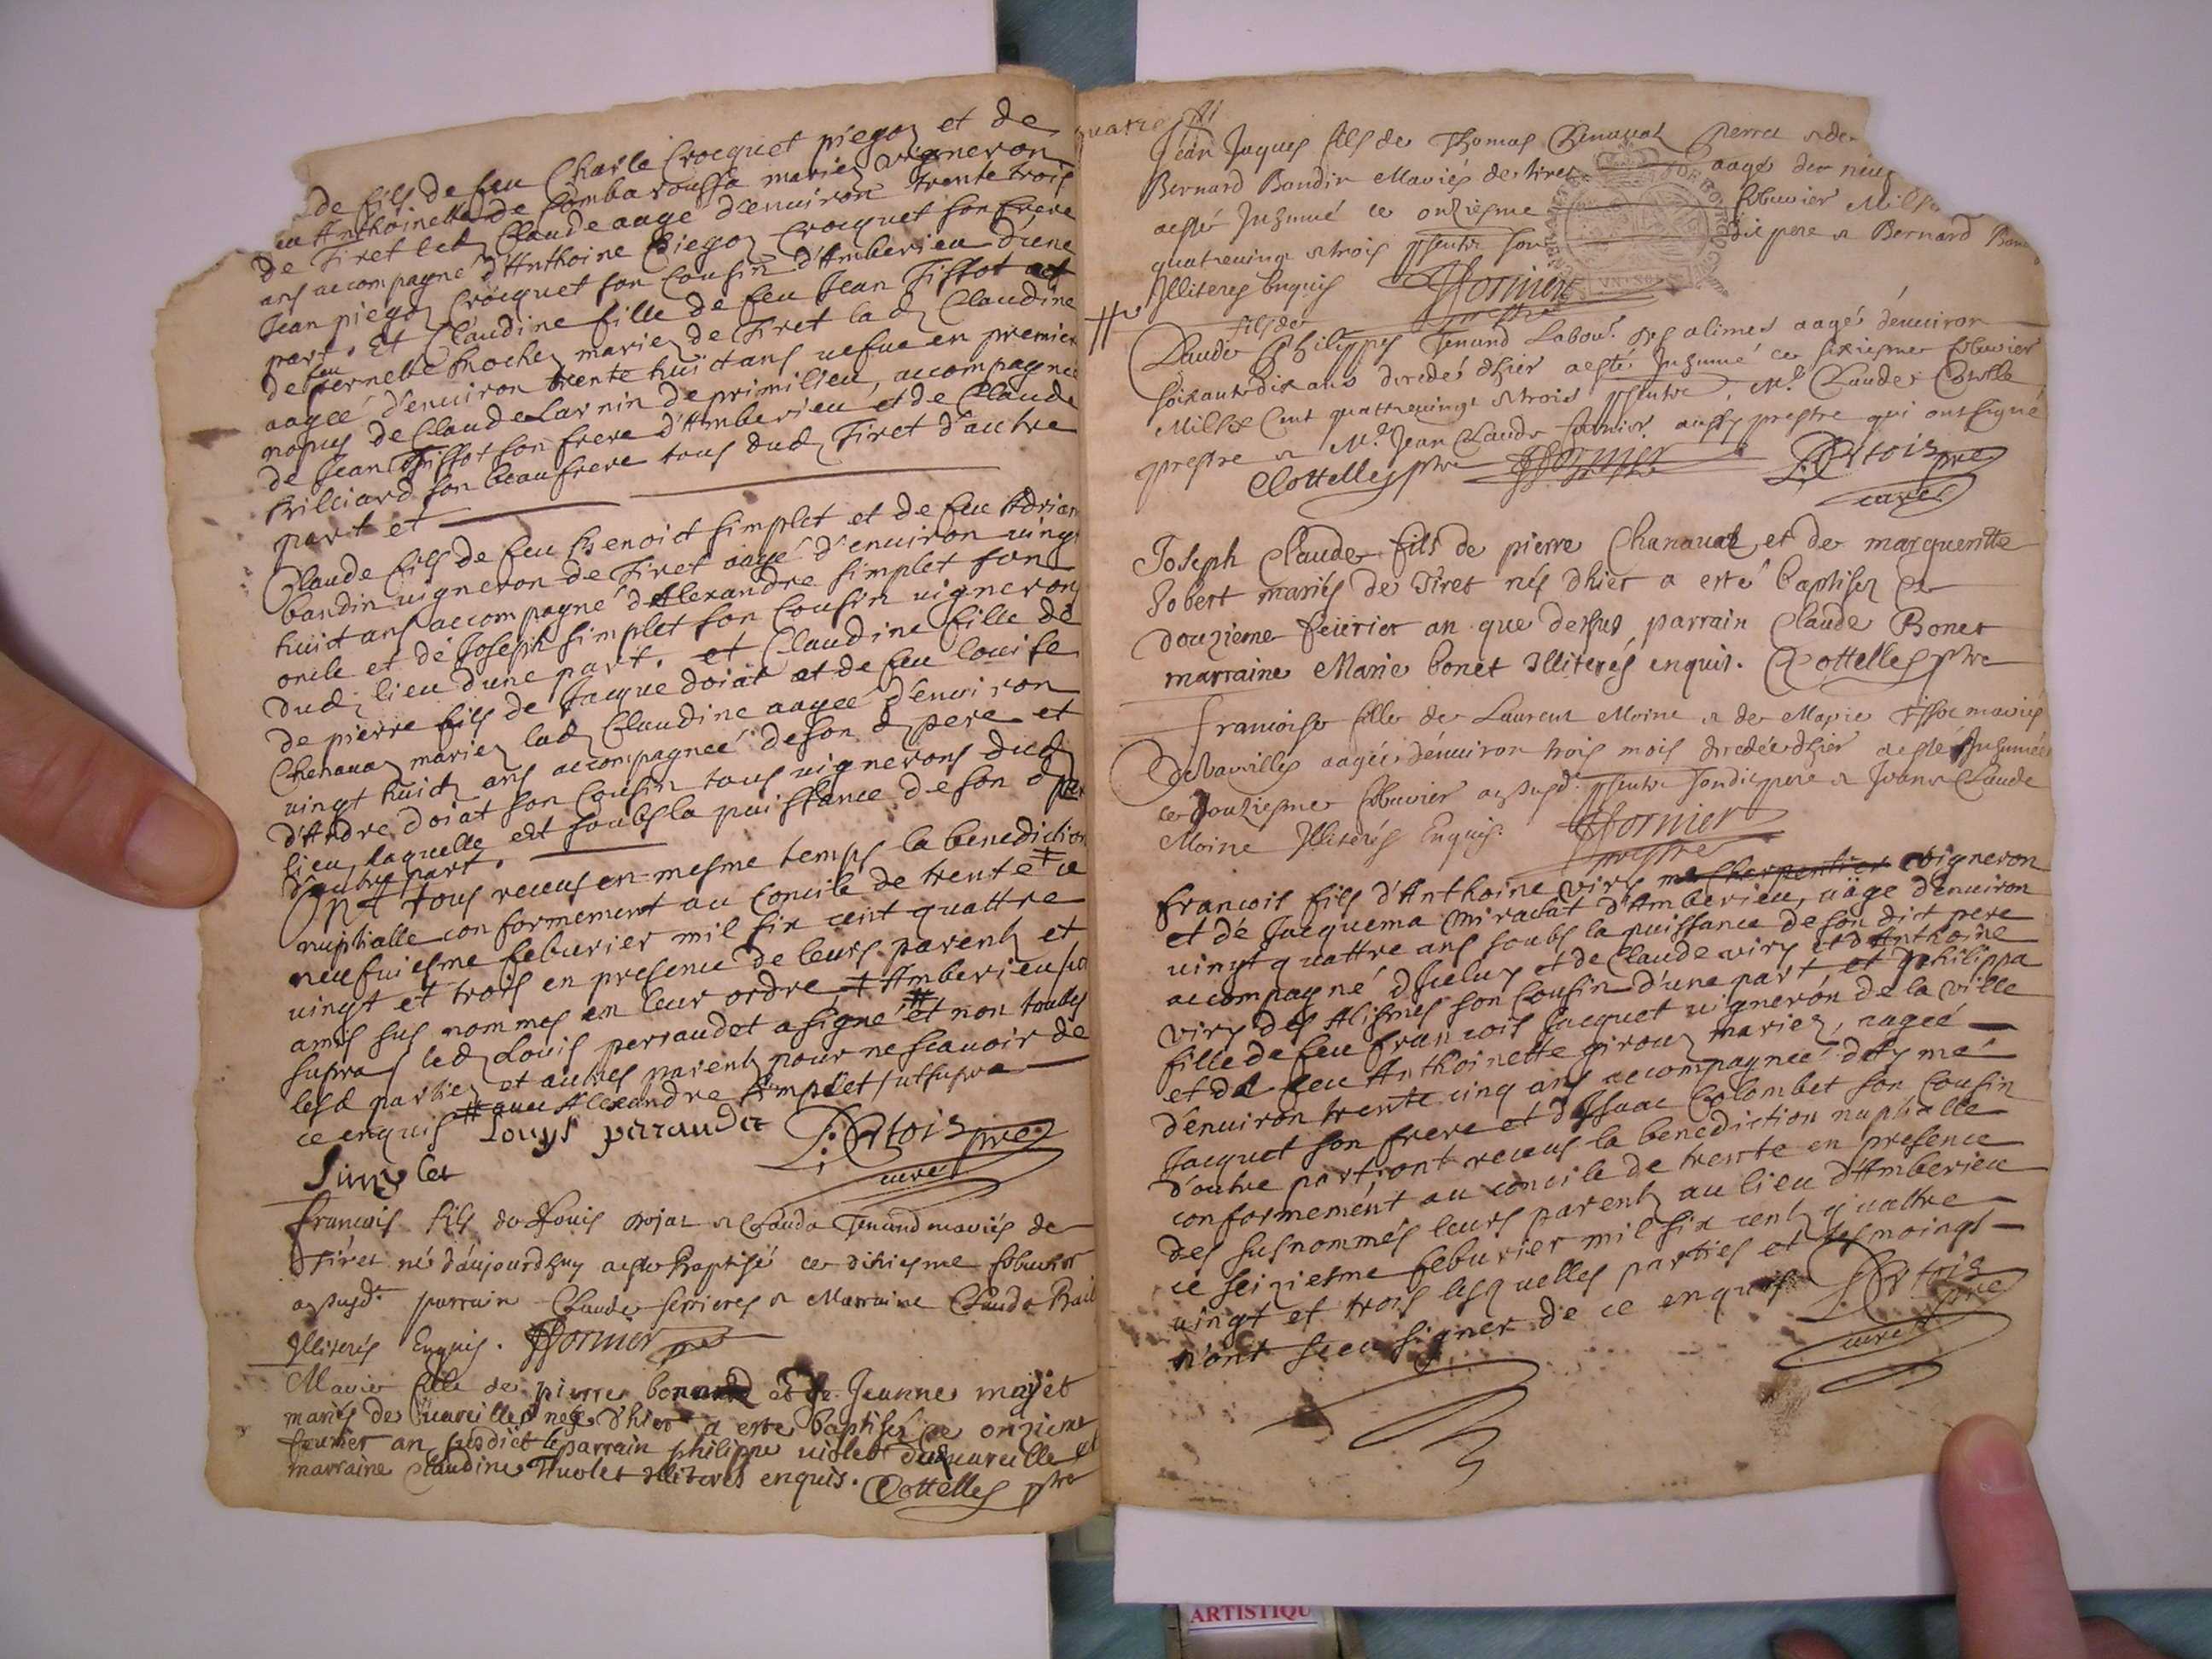 de fils de feu Charle Crocquet piegoz et de
Anthoinette de Combarousse mariez vigneron
de Tiret led Claude aagé d'enuiron trente trois
ans accompagné d'Anthoine Piegoz Crocquet son frere
Jean piegoz Crocquet son Cousin d'Amberieu d'une
part. Et Claudine fille de feu Jean Tissot et
de feu pernette Rochez mariez de Tiret lad Claudine
aageé d'enuiron trente huict ans uefue en premier
nopces de Claude Larnin de primilieu, accompagneé
de Jean Tissot son frere d'Amberieu et de Claude
Billiard son beaufrere tous dud Tiret d'autre
part et
Claude fils de feu Benoict simplet et de feu Adriane
baudin uigneron de Tiret aagé d'enuiron uingt
huict ans accompagné d'Alexandre simplet son
oncle et de Joseph simplet son Cousin uignerons
dud lieu d'une part. et Claudine fille de
de pierre fils de Jacque doiat et de feu louise
Chenauaz mariez lad Claudine aageé d'enuiron
uingt huict ans accompagneé de son d pere et
d'Andre doiat son Cousin tous uignerons dud
lieu, laquelle est soubs la puissance de son d pere
d'autre part.
Ont tous receus en mesme temps la benediction
nuptialle conformement au Concile de trente ce
neufuiesme feburier mil six cent quattre
uingt et trois en presence de leurs parents et
amis sus nommes en leur ordre Amberieu
supra led Louis perraudet a signé et non touttes
lesd parties et autres parents pour ne scauoir de
ce enquis # auec Alexandre simplet ut supra
Louys peraudet L: Artois pre
Simplet curé
francois fils de Louis dojat & Claude Tenand mariés de
Tiret né d'aujourdhuy a esté Baptisé ce dixiesme feburier
an susd. parrain Claude serrieres & Marraine Claude Bail
Illiterés Enquis. JFornier pre
Marie fille de pierre et de Jeanne majet
mariés de Vareilles neé d'hier a esté baptisée ce onzieme
feurier an susdict parrain philippe uiolet de uareille et
marraine Claudine Tiuolet illiterés enquis. Cottelles ptre
Jean Jaques fils de Thomas Chenauaz Pierre & de
Bernard Baudin Mariés de tiret aagé de neuf
a esté Inhumé ce onziesme feburier Mil
quatreuingt & trois psents son dit pere & Bernard
Illiteres Enquis JFornier prestre
fils de
Claude Philippes Tenand Labour. des alimes aagé d'enuiron
soixante dix ans decedé d'hier a esté Inhumé ce sixiesme feburier
Mil six Cent quattreuingt & trois psents, Mr. Claude Cottelle
prestre & Mr. Jean Claude fornier aussy prestre qui ont signé
Cottelles ptre JFornier prestre L: Artois pre
curé
Joseph Claude fils de pierre Chanauaz et de margueritte
Jobert mariés de Tiret nés d'hier a esté baptisez Ce
douzieme feurier an que dessus parrain Claude Bonet
marraine Marie bonet illiterés enquis. Cottelles ptre
francoise fille de Laurent Moine & de Marie Tissot mariés
de Vareilles aagée d'enuiron trois mois decedée d'hier a esté Inhumée
ce douziesme feburier an susd. psents son dit pere & Claude
Moine Illiterés Enquis. JFornier prestre
francois fils d'Anthoine viry me charpentier vigneron
et de Jacquema miradat d'Amberieu, aagé d'enuiron
uingt quattre ans soubs la puissance de son dict pere
accompagné d'Iceluy et de Claude viry et d'Anthoine
viry des Alismes son Cousin d'une part, et philippa
fille de feu francois Jacquet uigneron de la ville
et de feu Anthoinette girouz mariez, aageé
d'enuiron trente cinq ans accompagneé d'Aymé
Jacquet son frere et d'Isaac Colombet son Cousin
d'autre part, ont receus la benediction nuptialle
conformement au concile de trente en presence
des susnommés leurs parents au lieu d'Amberieu
ce seiziesme feburier mil six cents quattre
uingt et trois lesquelles parties et tesmoings
n'ont sceu signer de ce enquis L: Artois pre
curé
ARTISTIQU